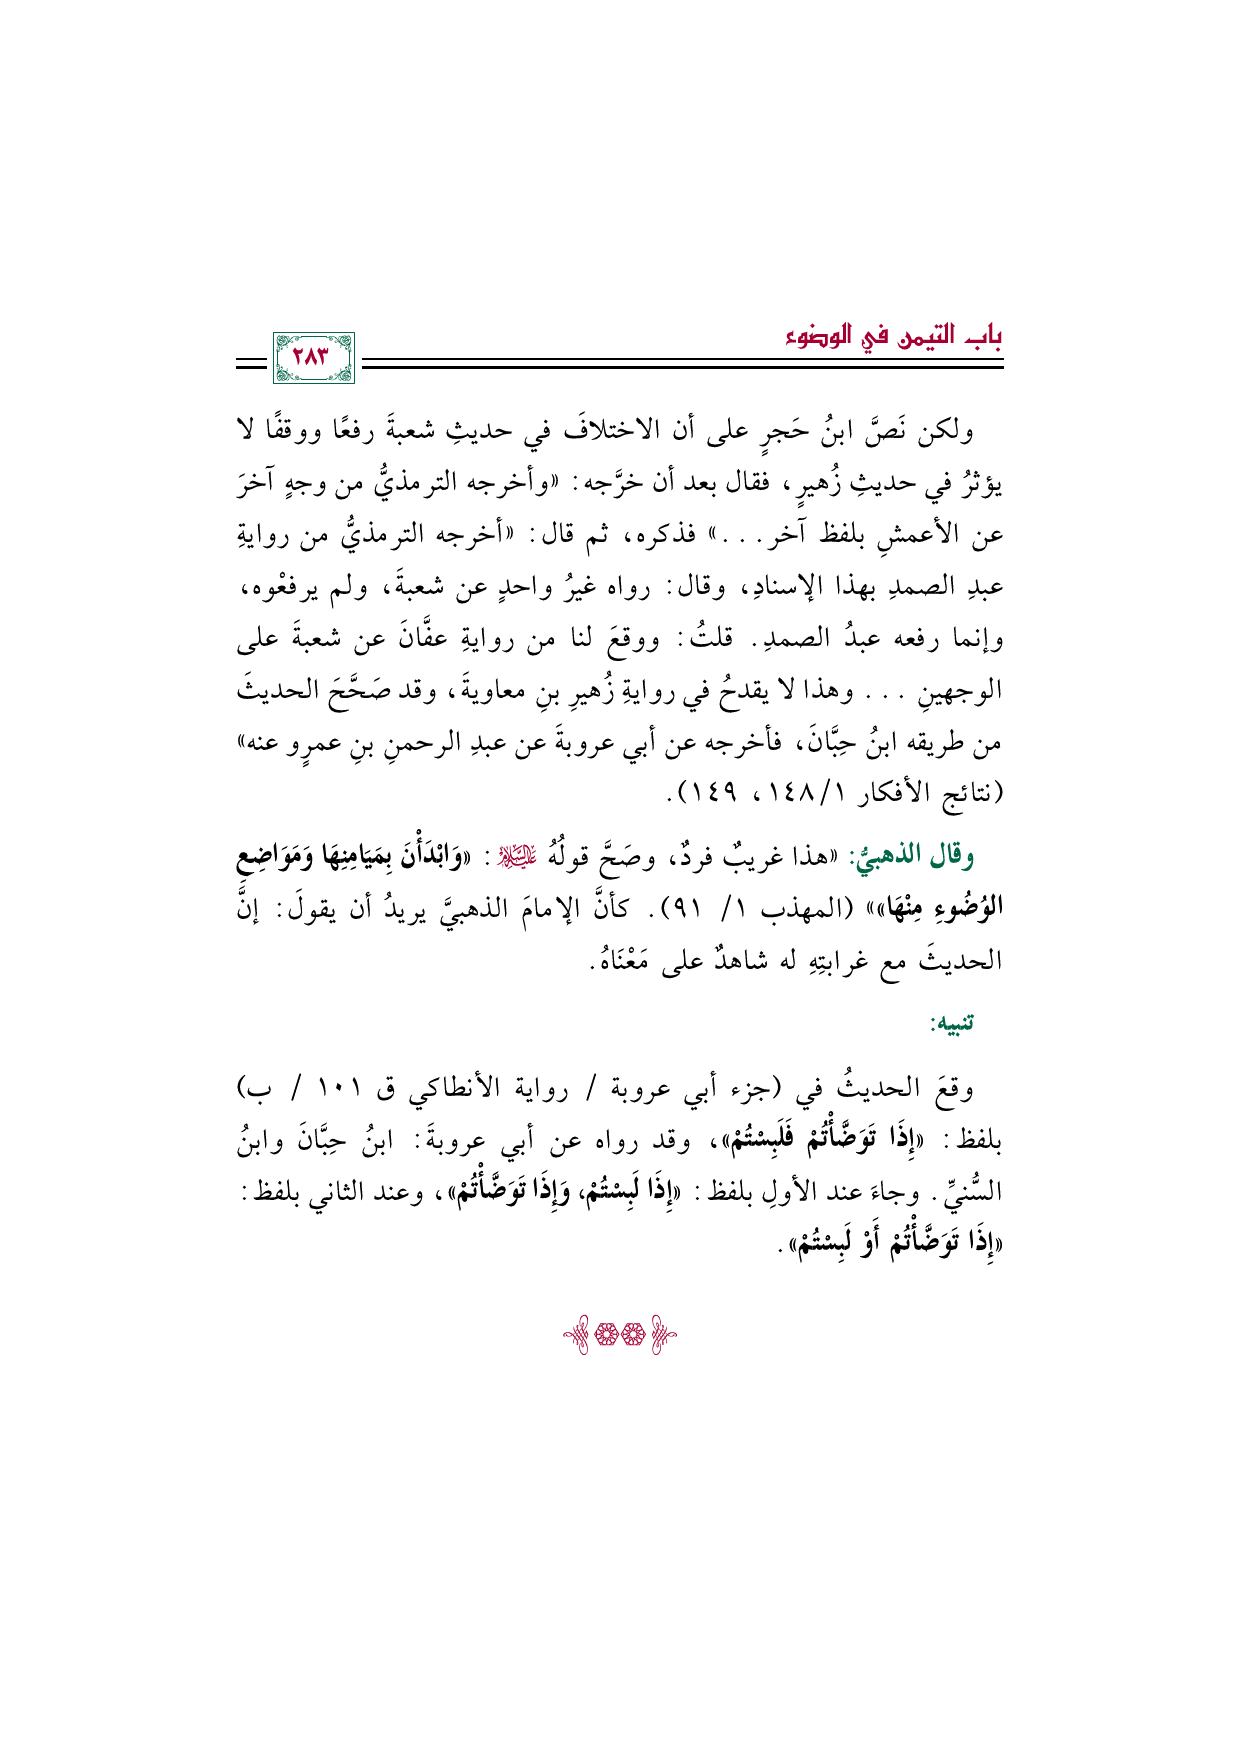 باب التيمن في الوضوء
٢٨٣
ولكن نَصَّ ابنُ حَجرٍ على أن الاختلافَ في حديثِ شعبةَ رفعًا ووقفًا لا
يؤثرُ في حديثِ زُهيرٍ، فقال بعد أن خرَّجه: «وأخرجه الترمذيُّ من وجهٍ آخرَ
عن الأعمشِ بلفظ آخر...» فذكره، ثم قال: «أخرجه الترمذيُّ من روايةِ
عبدِ الصمدِ بهذا الإسنادِ، وقال: رواه غيرُ واحدٍ عن شعبةَ، ولم يرفعْوه،
وإنما رفعه عبدُ الصمدِ. قلتُ: ووقعَ لنا من روايةِ عفَّانَ عن شعبةَ على
الوجهينِ ... وهذا لا يقدحُ في روايةِ زُهيرِ بنِ معاويةَ، وقد صَحَّحَ الحديثَ
من طريقه ابنُ حِبَّانَ، فأخرجه عن أبي عروبةَ عن عبدِ الرحمنِ بنِ عمرٍو عنه»
(نتائج الأفكار ١/ ١٤٨، ١٤٩).
وقال الذهبيُّ: «هذا غريبٌ فردٌ، وصَحَّ قولُهُ عليه السلام: «وَابْدَأْنَ بِمَيَامِنِهَا وَمَوَاضِعِ
الوُضُوءِ مِنْهَا»» (المهذب ١/ ٩١). كأنَّ الإمامَ الذهبيَّ يريدُ أن يقولَ: إنَّ
الحديثَ مع غرابتِهِ له شاهدٌ على مَعْنَاهُ.
تنبيه:
وقعَ الحديثُ في (جزء أبي عروبة / رواية الأنطاكي ق ١٠١ / ب)
بلفظ: «إِذَا تَوَضَّأْتُمْ فَلَبِسْتُمْ»، وقد رواه عن أبي عروبةَ: ابنُ حِبَّانَ وابنُ
السُّنيِّ. وجاءَ عند الأولِ بلفظ: «إِذَا لَبِسْتُمْ، وَإِذَا تَوَضَّأْتُمْ»، وعند الثاني بلفظ:
«إِذَا تَوَضَّأْتُمْ أَوْ لَبِسْتُمْ».